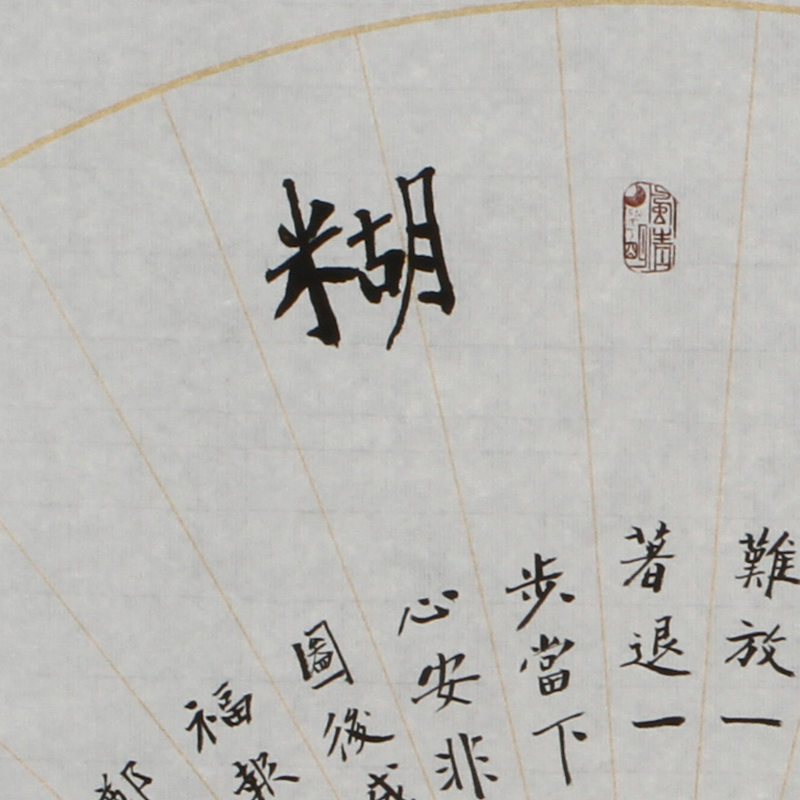 糊
難放一
著退一
步當下
心安非
圖後
福報
鄭